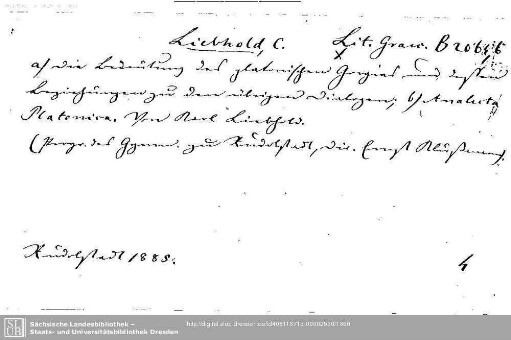 Liebhold, C. Lit. Graec. B 2066
a) Die Bedeutung des platonischen Gorgias und dessen
Beziehungen zu den übrigen Dialogen; b) Analecta
Platonica. Von Karl Liebhold.
(Progr. des Gymn. zu Rudolstadt, Dir. Ernst Klußmann)
Rudolstadt 1885.
4
Sächsische Landesbibliothek –
Staats- und Universitätsbibliothek Dresden